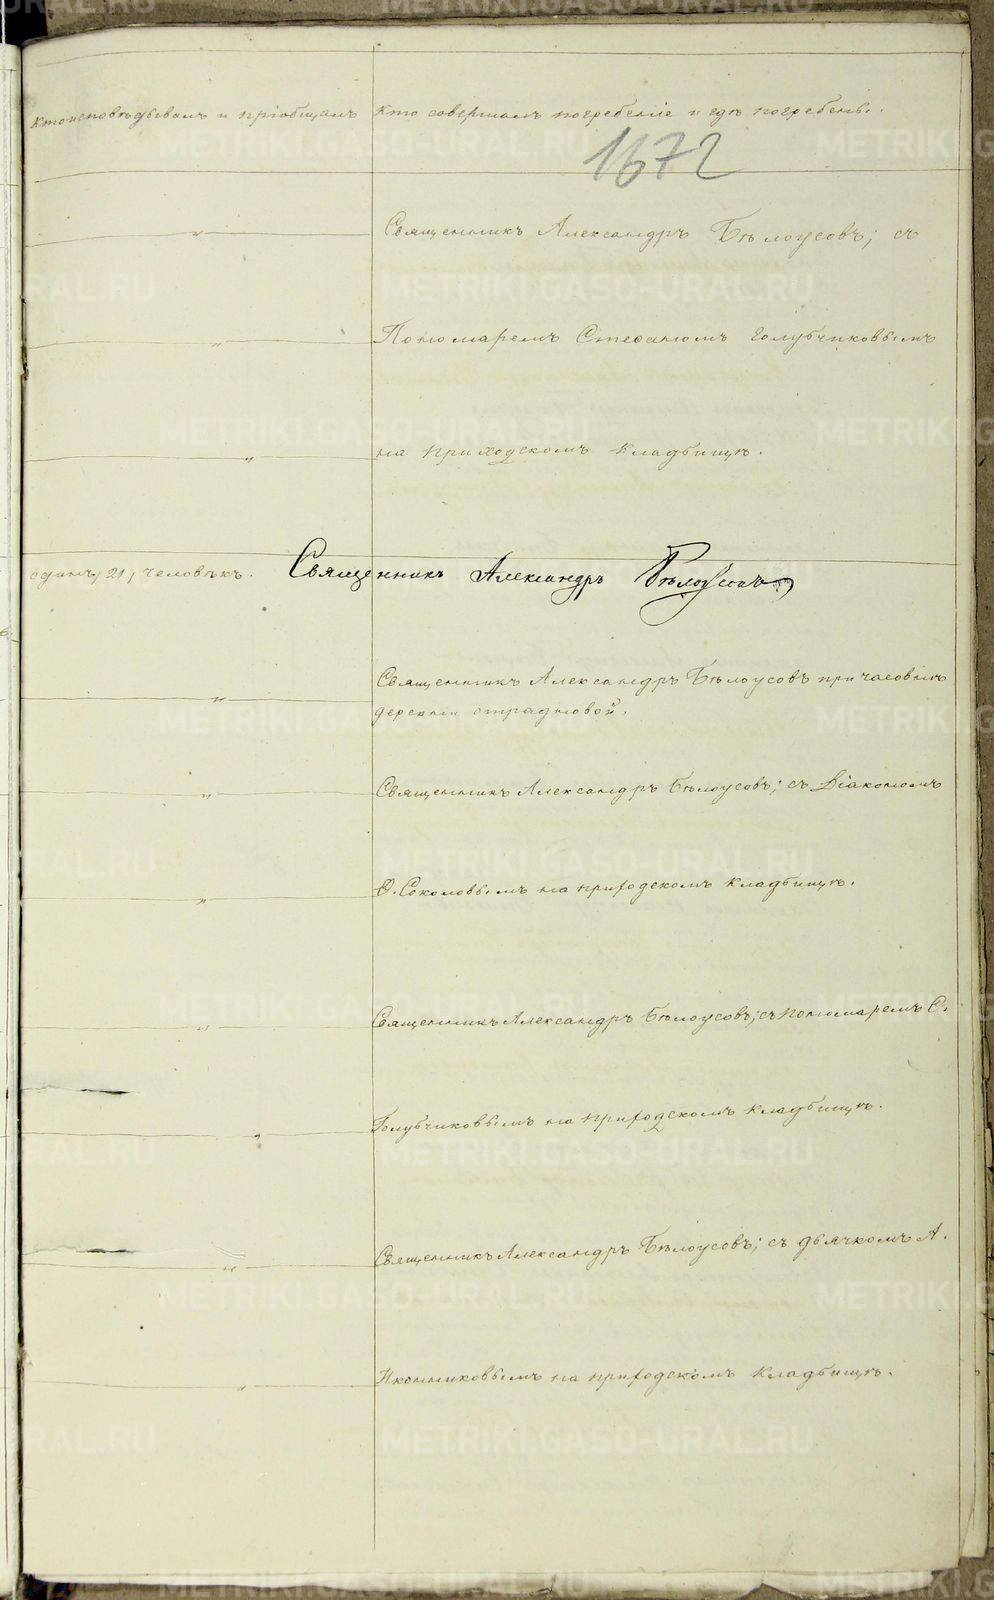 Кто исповѣдывалъ и пріобщалъ
Кто совершалъ погребеніе и гдѣ погребены.
1672
Священникъ Александръ Бѣлоусовъ; съ
Пономаремъ Стефаномъ Голубчиковымъ
на приходскомъ кладбищѣ.
одинъ, 21, человѣкъ. Священникъ Александръ Бѣлоусовъ
Священникъ Александръ Бѣлоусовъ при часовнѣ
деревни
Священникъ Александръ Бѣлоусовъ; съ Діакономъ
Ѳ. Соколовымъ на приходскомъ кладбищѣ.
Священникъ Александръ Бѣлоусовъ; съ пономаремъ С.
Голубчиковымъ на приходскомъ кладбищѣ.
Священникъ Александръ Бѣлоусовъ; съ дьячкомъ А.
Иконниковымъ на приходскомъ кладбищѣ.
METRIKI.GASO-URAL.RU